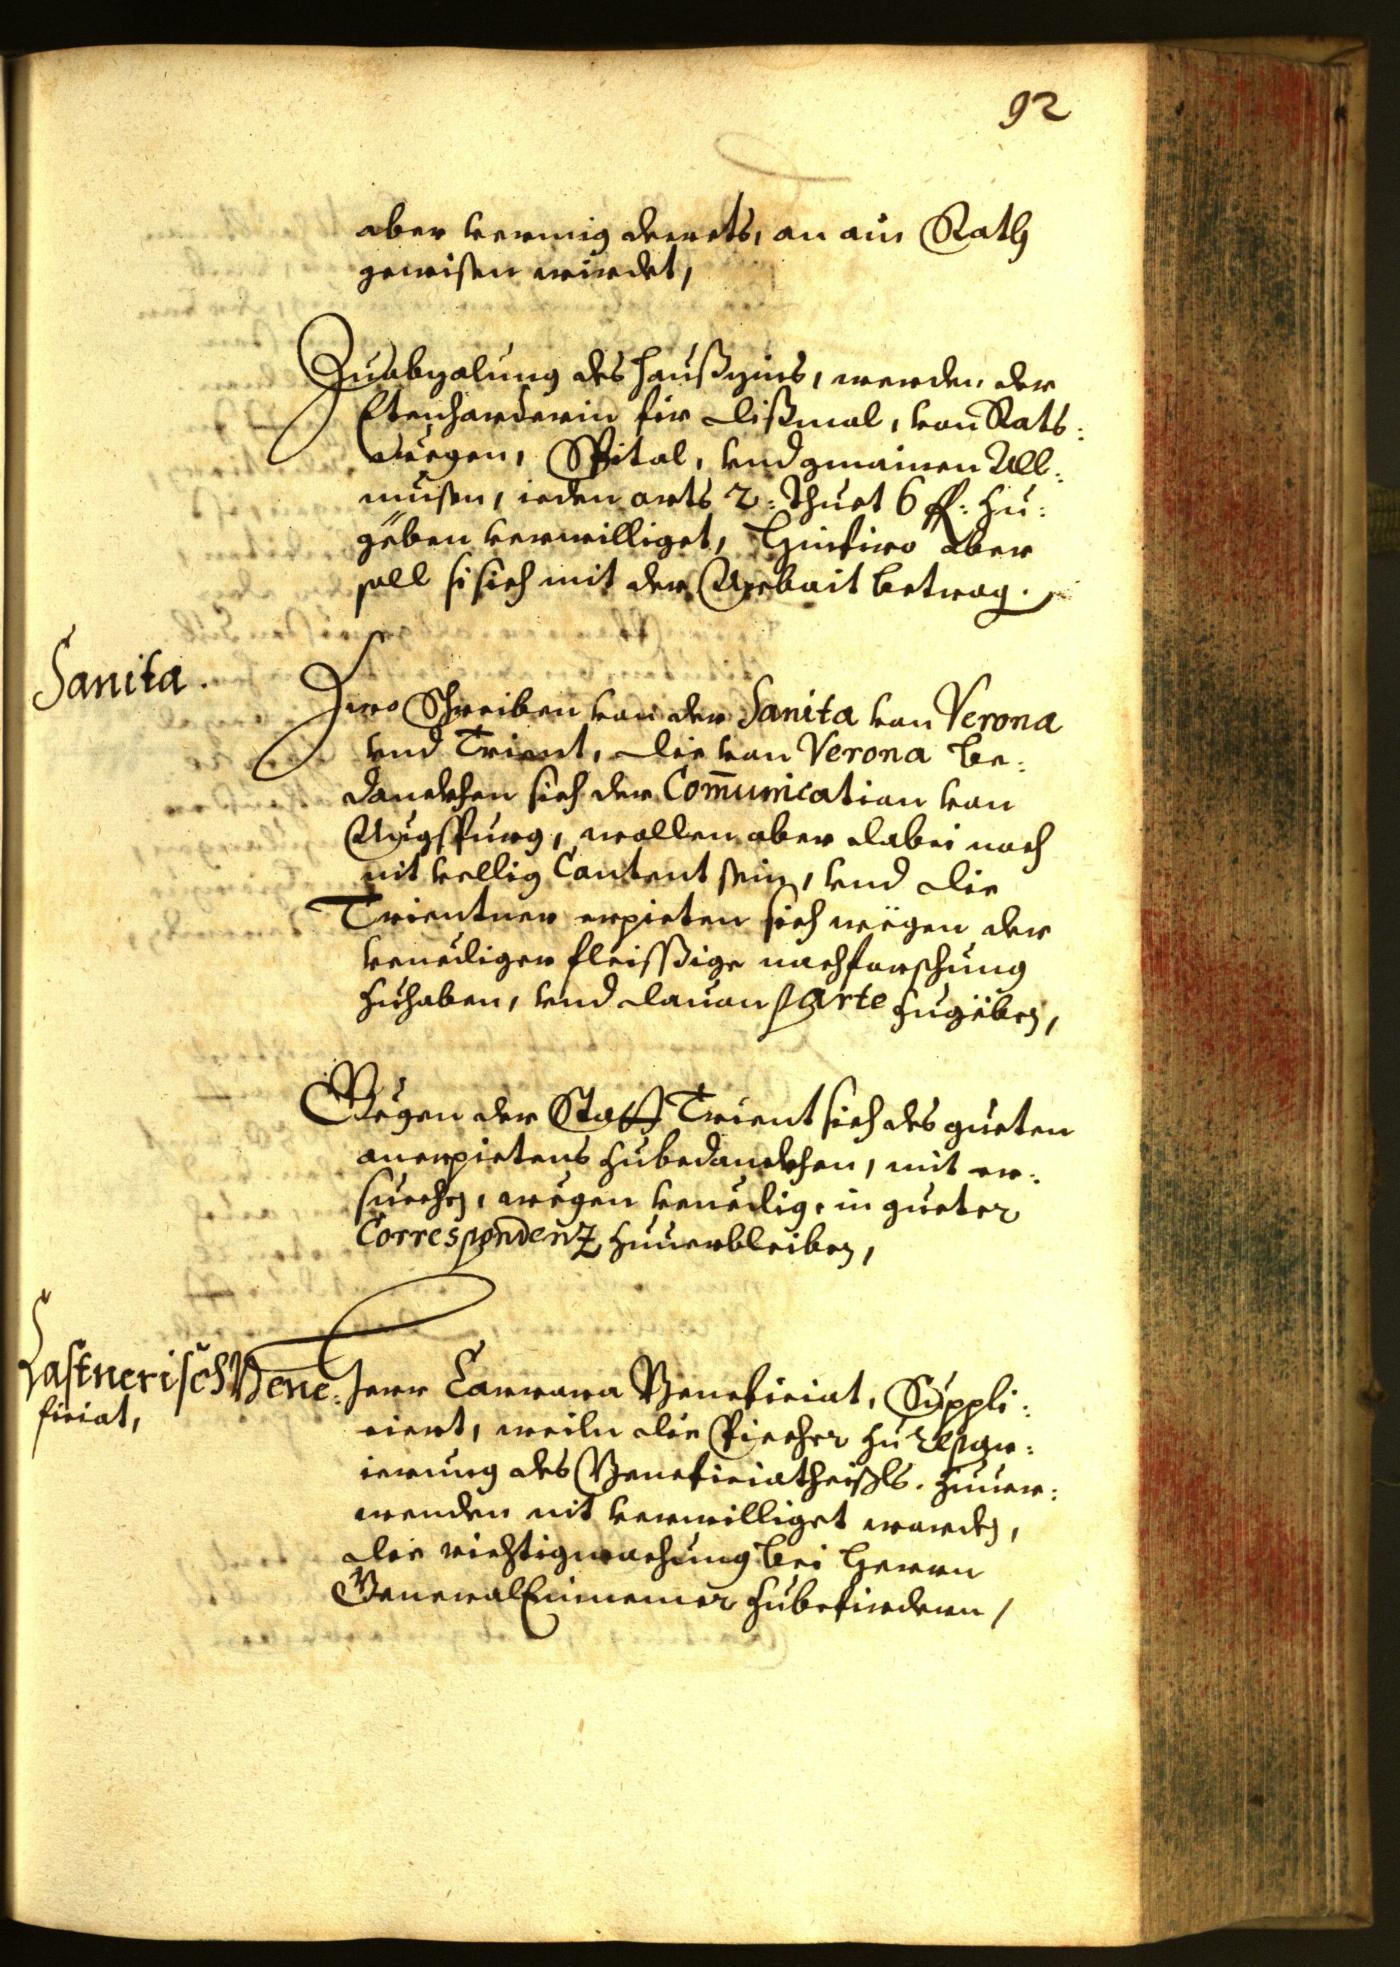 92
aber vermig decrets, an ain Rath
gewisen wirdet,
Zuabzalung des Haußzins, werden der
Etenharderin für dißmal, von Rats:
wegen, Spital, vnd gmainen All:
musen, ieden orts 2: thuet 6 fl: zu:
geben verwilliget, hinfiro aber
soll si sich mit der Arbait betrag.
Sanita.
Zwo Schreiben von der Sanita von Verona
vnd Trient, die von Verona be:
danckhen sich der Com̄unication von
Augspurg, wollen aber dabei noch
nit vellig Content sein, vnd die
Trientner erpieten sich wegen der
venediger fleissßige nachforschung
zuhaben, vnd dauon parte zugeben,
Gegen der Statt Trient sich des gueten
anerpietens zubedanckhen, mit er:
suechen, wegen venedig, in gueter
Correspondenz zuuerbleiben,
Castnerisch Bene:
ficiat,
Herr Carrara Beneficiat, Suppli:
ciert, weiln die Piecher zu repar:
ierung des Beneficiatheißls. zuuer:
wenden nit verwilliget worden,
die richtigmachung bei Herrn
General Einnemer zubefirdern,